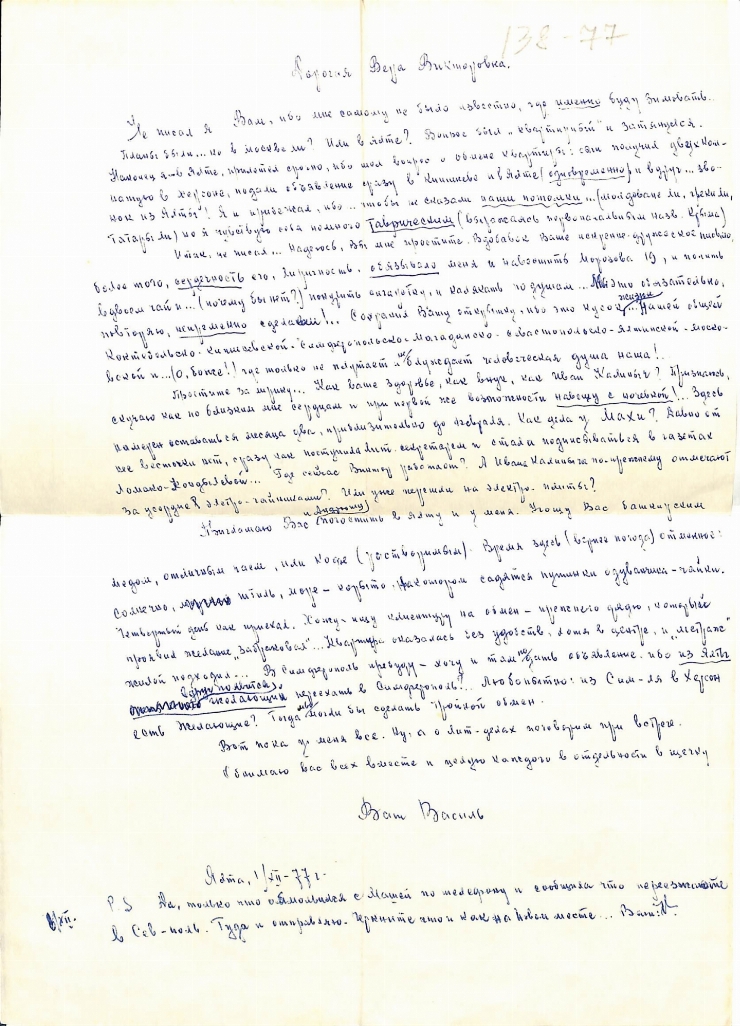 138-77
Дорогая Вера Викторовна.
Не писал я Вам, ибо мне самому не было известно, где именно буду зимовать.
Планы были... но в москве ли? Или в Ялте? Вопрос был "квартирный" и затянулся.
Наконец я в Ялте, прилетел срочно, ибо шел вопрос о обмене квартиры: сын получил двухком-
натную в Херсоне, подали объявление сразу в Кишиневе и в Ялте (одновременно) и вдруг... зво-
нок из Ялты! Я и прибежал, ибо... чтобы не сказали наши потомки... (молдоване ли, греки ли,
татары ли) но я чувствую себя немного Таврическим (выражаясь первоначальным назв. Крыма)
Итак, не писал... надеюсь, Вы мне простите. Вдобавок Ваше искренне-дружеское письмо,
более того, сердечность его, лиричность, обязывало меня и навестить Морозова 19, и попить
вдвоем чай и... (почему бы нет?) и калякать по душам... Это обязательно,
повторяю, непременно сделаем!... Сохранил Вашу открытку, ибо это кусок жизни нашей общей
Коктебельско-кишиневской-Симферопольско-Магаданско-севастопольско-ялтинской-моско-
вской и... (О, боже!) где только не плутает и не блуждает человеческая душа наша!
Простите за лирику... Как ваше здоровье, как внук, как Иван Калиныч? Признаюсь,
скучаю как по близким мне сердцам и при первой же возможности навещу с ночевкой!... Здесь
намерен оставаться месяца два, приблизительно до февраля. Как дела у Махи? Давно от
нее весточки нет, сразу как поступила лит. секретарем и стала подписываться в газетах
Ломако-Кондылевой... Где сейчас Виктор работает? А Ивана Калиныча по-прежнему отмечают
за усердие электро-чайниками? Или уже перешли на электро-плиты?
Приглашаю Вас погостить в Ялту и у меня. Угощу Вас башкирским
медом, отличным чаем, или кофе (растворимым). Время здесь (вернее погода) отменное:
солнечно, штиль, море - корыто. На котором садятся пушинки одуванчика-чайки.
Четвертый день как приехал. Хожу-ищу клиентуру на обмен - прежнего дядю, который
проявил желание "забраковал"... Квартира оказалась без удобств, хотя в центре, и "метраж"
жилой подходил... В Симферополь приеду - хочу и там дать объявление, ибо из Ялты
вдруг появится желающий переехать в Симферополь?.. Любопытно: из Сим-ля в Херсон
есть желающие? Тогда мы могли бы сделать тройной обмен.
Вот пока у меня все. Ну, а о лит-делах поговорим при встрече.
Обнимаю вас всех вместе и целую каждого в отдельности в щечку
Ваш Василь
Ялта, 1/XII-77 г.
/XII. P.S Да, только что с Машей по телефону и сообщила что переезжаете
в Сев-поль. Туда и отправляю. Черкните что и как на новом месте... Ваш: В.